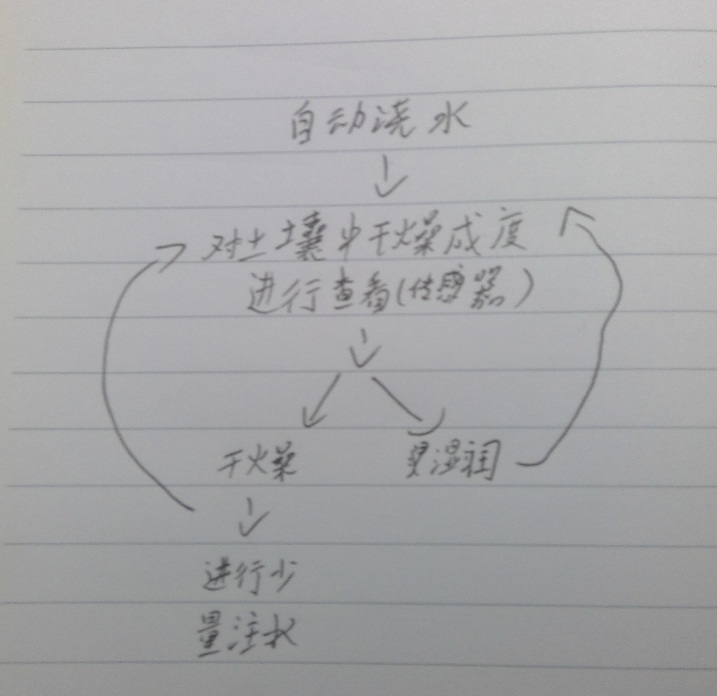 自动浇水
对土壤中干燥成度
进行查看(传感器)
干燥
湿润
进行少
量注水